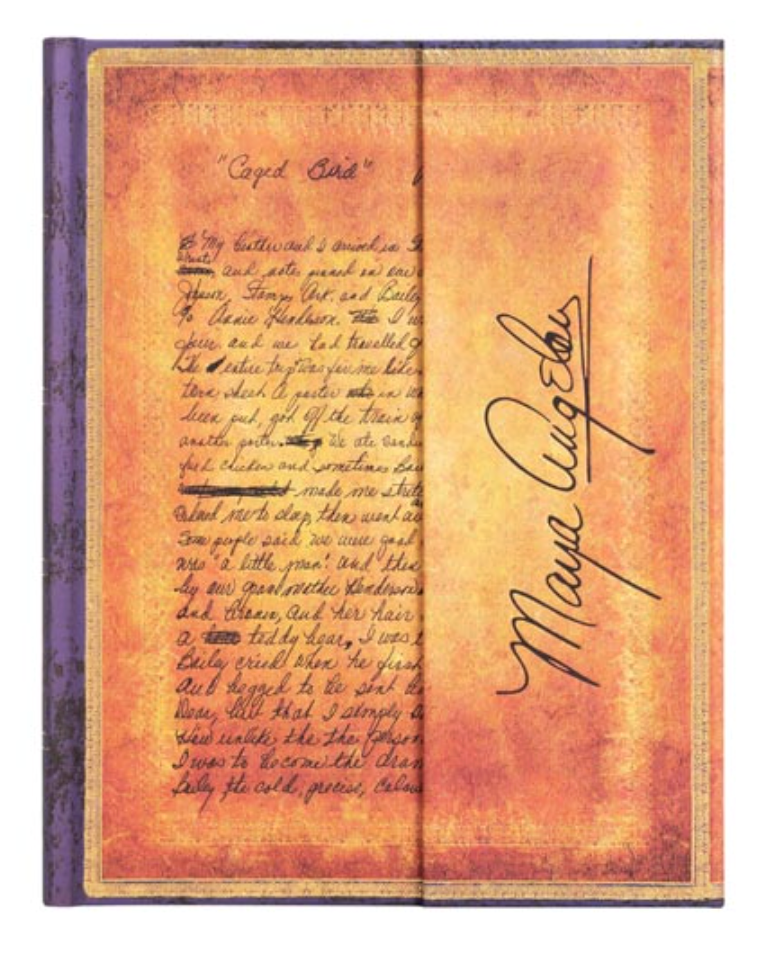 "Caged Bird"
My brother and I arrived in
and notes pinned on our
Johnson, Stamps, Ark. and Bailey
% Annie Henderson. I
and we had travelled
The entire trip was for me like
torn sheet A porter in
been put, got off the train
another porter. We ate
fried chicken and sometimes
made me
me to sleep, then went
Some people said we were good
was "a little man". and then
by our grandmother Henderson
and brown, and her hair
a teddy bear, I was
Bailey cried when he first
And begged to be sent
Dear, but that I simply
How unlike the the person
I was to become the
Bailey the cold, precise,
Maya Angelou